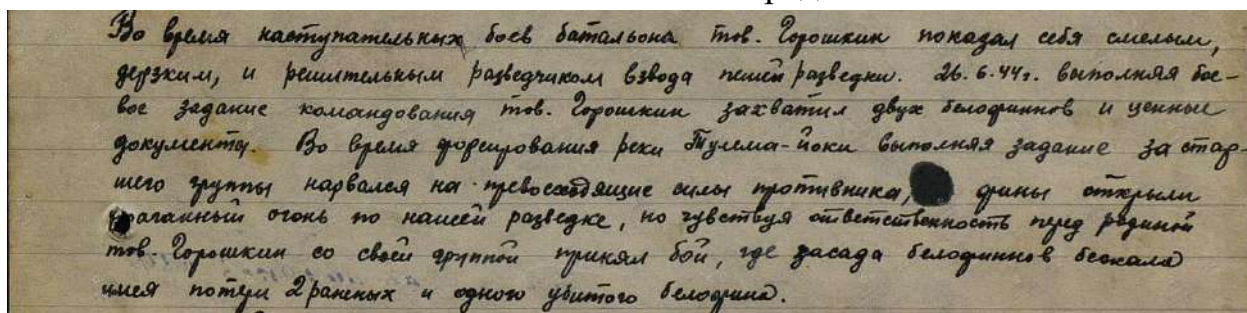 Во время наступательных боев батальона тов. Горошкин показал себя смелым,
дерзким, и решительным разведчиком взвода пешей разведки. 26.6.44г. выполняя бое-
вое задание командования тов. Горошкин захватил двух белофиннов и ценные
документы. Во время форсирования реки Тулема-йоки выполняя задание за стар-
шего группы нарвался на превосходящие силы противника, фины открыли
ураганный огонь по нашей разведке, но чувствуя ответственность перед родиной
тов. Горошкин со своей группой принял бой, где засада белофиннов бежала
имея потери 2 раненых и одного убитого белофина.